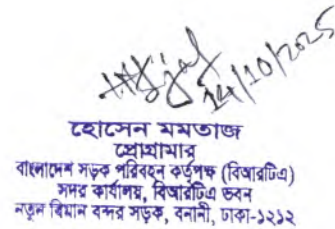 14/10/2025
হোসেন মমতাজ
প্রোগ্রামার
বাংলাদেশ সড়ক পরিবহন কর্তৃপক্ষ (বিআরটিএ)
সদর কার্যালয়, বিআরটিএ ভবন
নতুন বিমান বন্দর সড়ক, বনানী, ঢাকা-১২১২